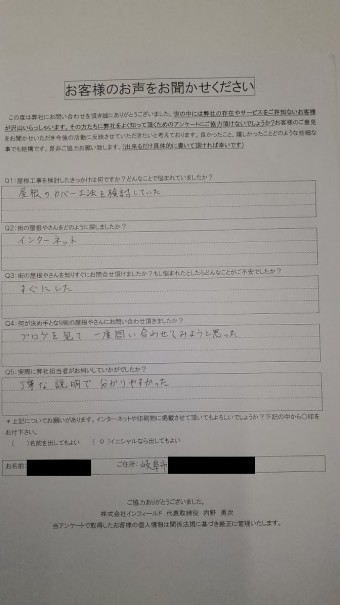 お客様のお声をお聞かせください
この度は弊社にお問い合わせを頂き誠にありがとうございました。世の中には弊社の存在やサービスをご存知ないお客様
が沢山いらっしゃいます。その方たちに弊社をよく知って頂くためのアンケートにご協力頂けないでしょうか?お客様のご意見
をお聞かせいただき今後の活動に反映させていただきたいと考えております。良かったこと、嬉しかったことどのような些細な
事でも結構です。是非ご協力お願い致します。(出来るだけ具体的に書いて頂ければ幸いです)
Q1:屋根工事を検討したきっかけは何ですか?どんなことで悩まれていましたか?
屋根のカバー工法を検討していた
Q2:街の屋根やさんをどのように探しましたか?
インターネット
Q3:街の屋根やさんを知りすぐにお問合せ頂けましたか?もし悩まれたとしたらどんなことがご不安でしたか?
すぐにした
Q4:何が決め手となり街の屋根やさんにお問い合わせ頂きましたか?
ブログを見て 一度問い合わせてみようと思った
Q5:実際に弊社担当者がお伺いしていかがでしたか?
丁寧な説明で分かりやすかった
*上記についてお願いがあります。インターネットや印刷物に掲載させて頂いてもよろしいでしょうか?下記の中から〇印を
お付け下さい。
( )名前を出してもよい (○)イニシャルなら出してもよい
お名前: ご住所: 岐阜市
ご協力ありがとうございました。
株式会社インフィールド 代表取締役 内野 勇次
当アンケートで取得したお客様の個人情報は関係法規に基づき厳正に管理いたします。